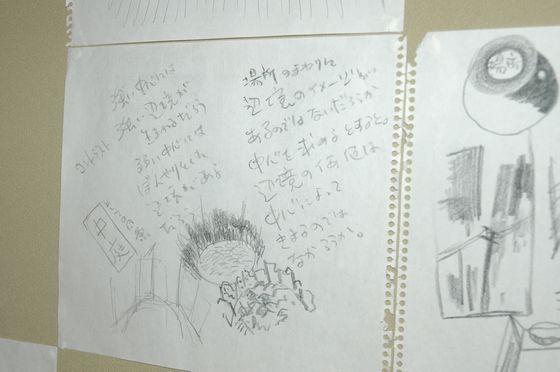 場所のまわりに
辺境のイメージが
あるのではないだろうか
中心を求めるとすると。
辺境の価値は
中心によって
きまるのでは
なかろうか。
強い中心には
強い辺境が
生まれるだろう
弱い中心には
ぼんやりとした
辺境がある
だろう
コントラスト
中心
場所